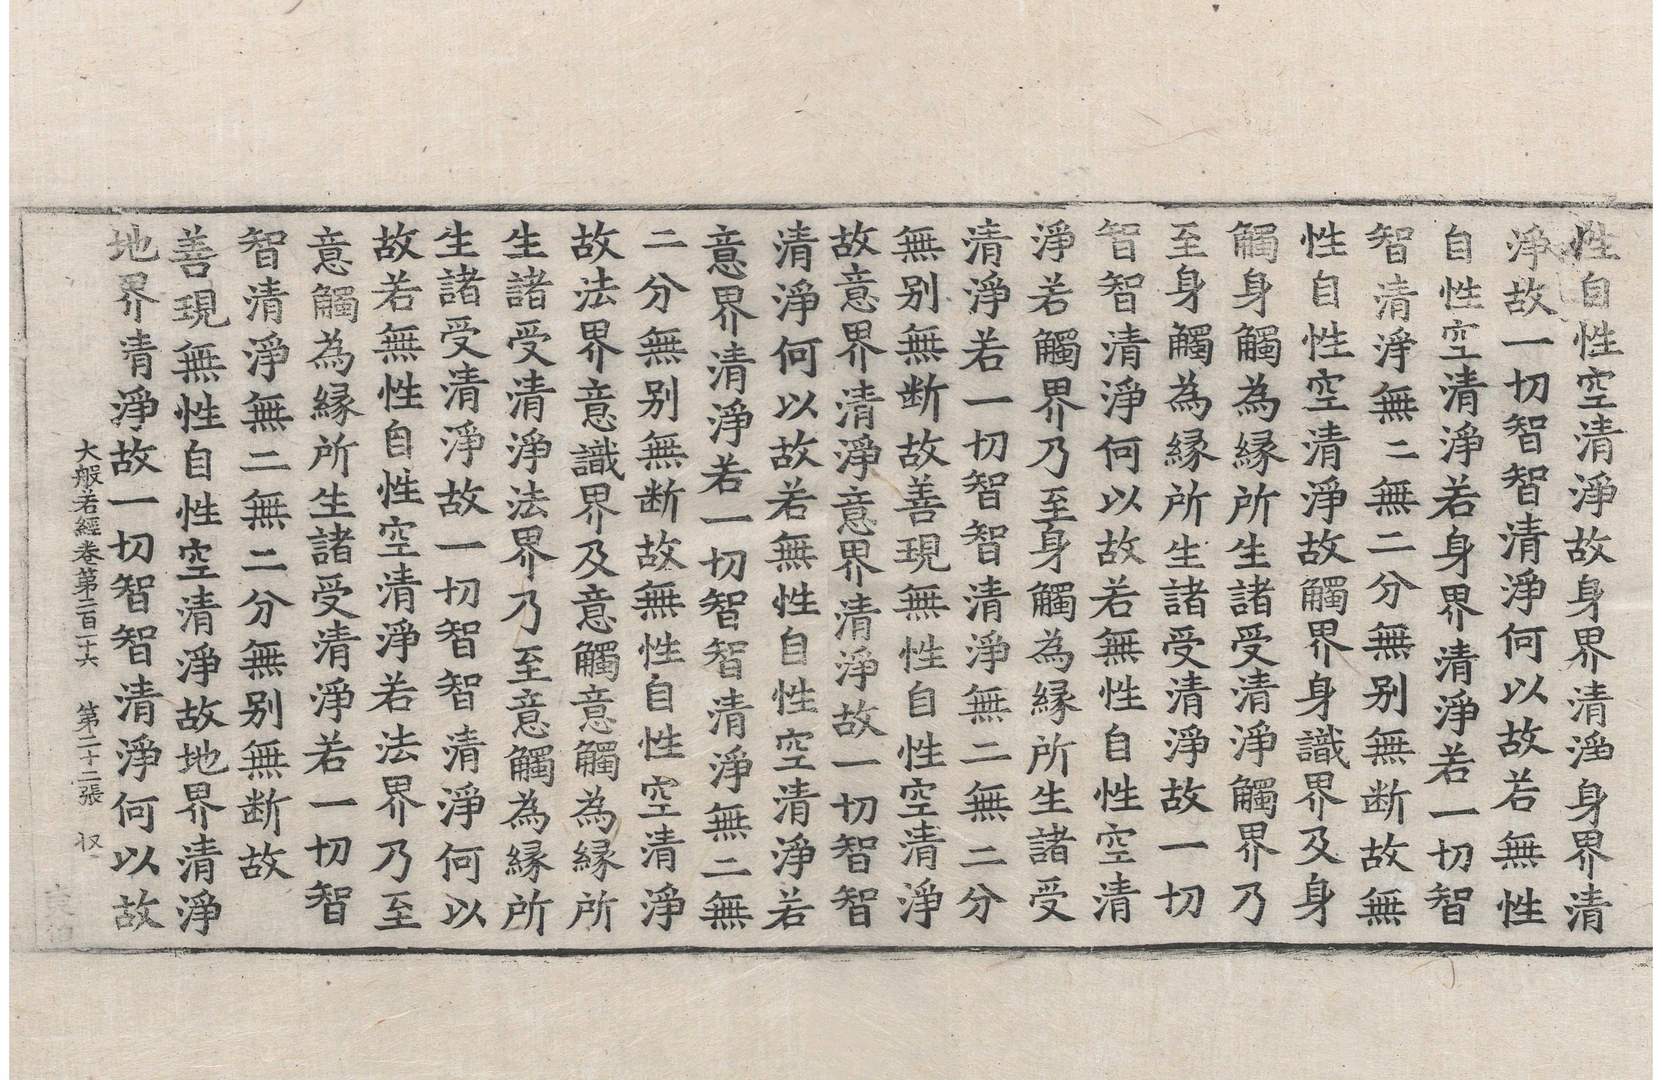 性自性空清淨故身界清淨身界清
淨故一切智智清淨何以故若無性
自性空清淨若身界清淨若一切智
智清淨無二無二分無别無断故無
性自性空清淨故觸界身識界及身
觸身觸為縁所生諸受清淨觸界乃
至身觸為縁所生諸受清淨故一切
智智清淨何以故若無性自性空清
淨若觸界乃至身觸為縁所生諸受
清淨若一切智智清淨無二無二分
無别無断故善現無性自性空清淨
故意界清淨意界清淨故一切智智
清淨何以故若無性自性空清淨若
意界清淨若一切智智清淨無二無
二分無别無断故無性自性空清淨
故法界意識界及意觸意觸為縁所
生諸受清淨法界乃至意觸為縁所
生諸受清淨故一切智智清淨何以
故若無性自性空清淨若法界乃至
意觸為縁所生諸受清淨若一切智
智清淨無二無二分無别無断故
善現無性自性空清淨故地界清淨
地界清淨故一切智智清淨何以故
大般若經卷第二百一十六 第二十二張 収